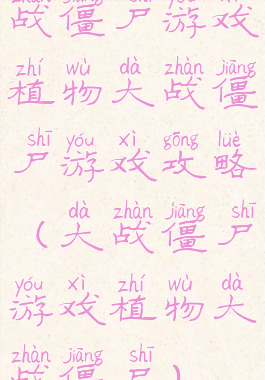 zhàn jiāng shī yóu xì
战僵尸游戏
zhí wù dà zhàn jiāng
植物大战僵
shī yóu xì gōng lüè
尸游戏攻略
dà zhàn jiāng shī
(大战僵尸
yóu xì zhí wù dà
游戏植物大
zhàn jiāng shī
战僵尸)